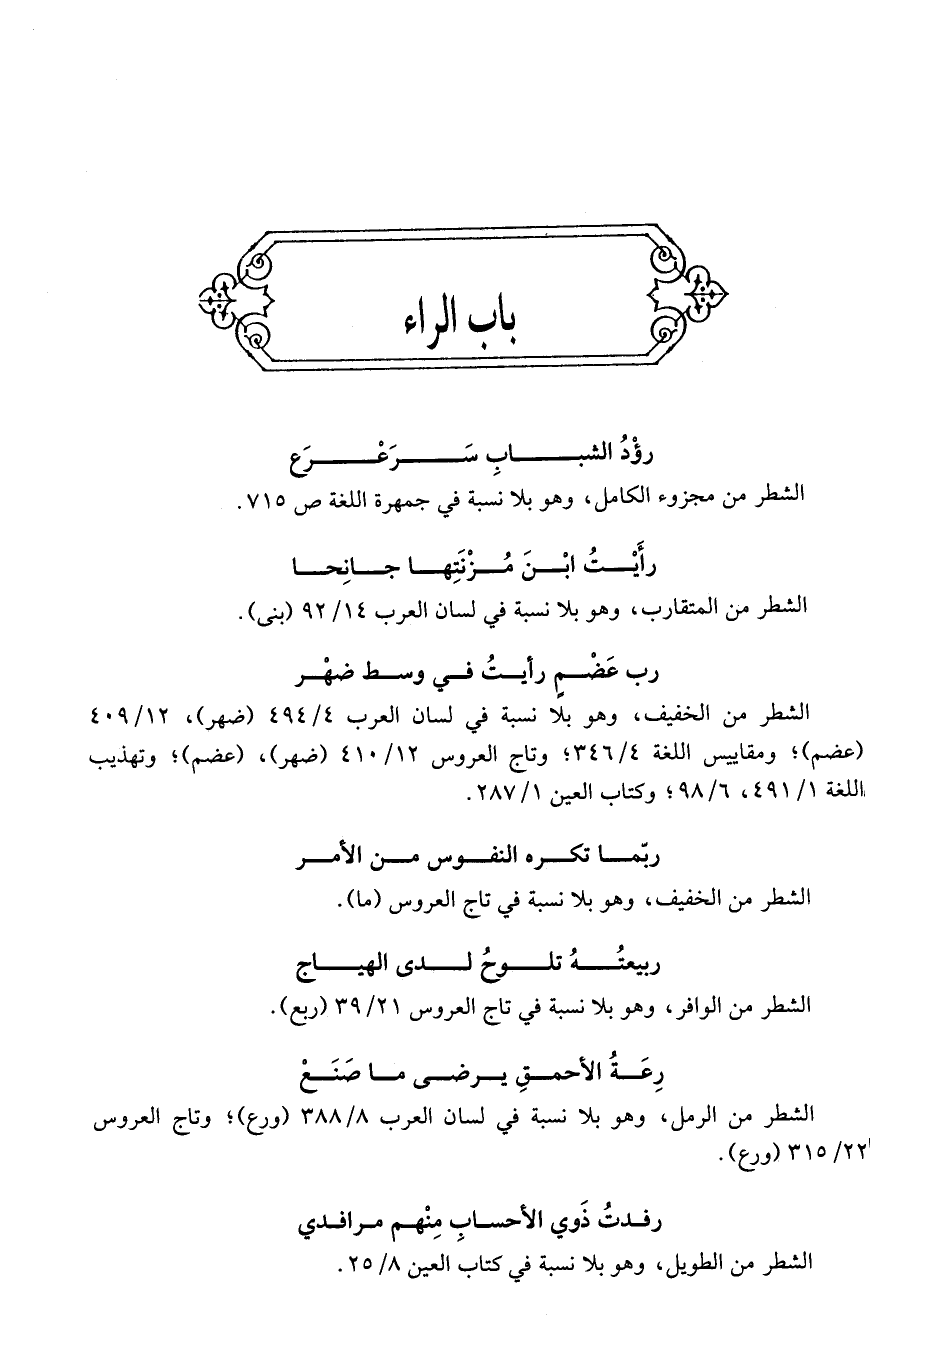 باب الراء
رؤْدُ الشبابِ سَرَعْرَع
الشطر من مجزوء الكامل، وهو بلا نسبة في جمهرة اللغة ص ٧١٥.
رأَيْتُ ابْنَ مُزْنَتِها جانِحا
الشطر من المتقارب، وهو بلا نسبة في لسان العرب ١٤/ ٩٢ (بنى).
رب عَضْمٍ رأيتُ في وسط ضهْر
الشطر من الخفيف، وهو بلا نسبة في لسان العرب ٤/ ٤٩٤ (ضهر)، ١٢/ ٤٠٩
(عضم)؛ ومقاييس اللغة ٤/ ٣٤٦؛ وتاج العروس ١٢/ ٤١٠ (ضهر)، (عضم)؛ وتهذيب
اللغة ١/ ٤٩١، ٦/ ٩٨؛ وكتاب العين ١/ ٢٨٧.
ربّما تكره النفوس من الأمر
الشطر من الخفيف، وهو بلا نسبة في تاج العروس (ما).
ربيعتُهُ تلوحُ لدى الهياج
الشطر من الوافر، وهو بلا نسبة في تاج العروس ٢١/ ٣٩ (ربع).
رِعَةُ الأحمقِ يرضى ما صَنَعْ
الشطر من الرمل، وهو بلا نسبة في لسان العرب ٨/ ٣٨٨ (ورع)؛ وتاج العروس
٢٢/ ٣١٥ (ورع).
رفدتُ ذَوي الأحسابِ مِنْهم مرافدي
الشطر من الطويل، وهو بلا نسبة في كتاب العين ٨/ ٢٥.